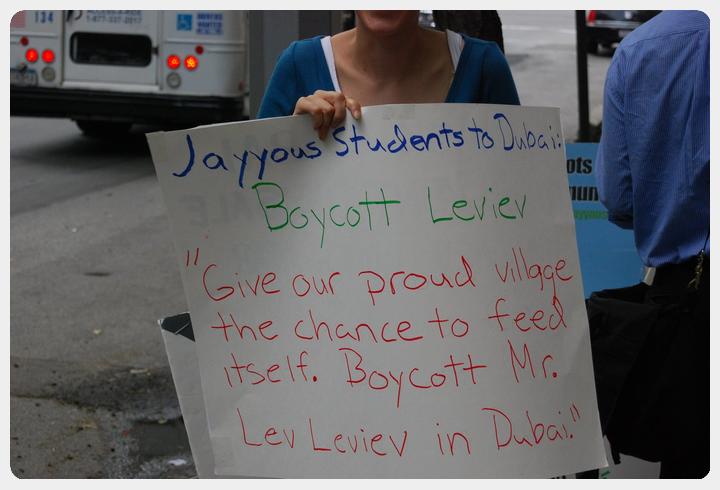 134
1-877-337-2017
DRIVERS
WANTED
Jayyous Students to Dubai:
Boycott Leviev
"Give our proud village
the chance to feed
itself. Boycott Mr.
Lev Leviev in Dubai."
ots
mun